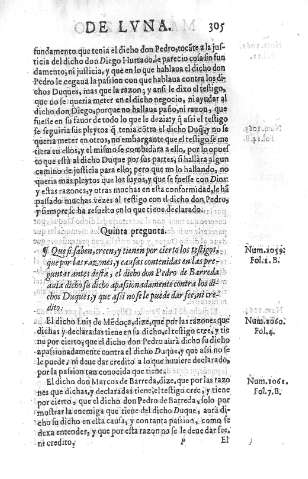 DE LVNA. 305
fundamento que tenia el dicho don Pedro, tocãte a la jus-
ticia del dicho don Diego Hurtado, le parecio cosa sin fun
damento, ni justicia, y que en lo que hablaua el dicho don
Pedro le cegaua la passion con que hablaua contra los di-
chos Duques, mas que la razon; y ansi le dixo el testigo,
que no se queria meter en el dicho negocio, ni ayudar al
dicho don Diego, porque no hallaua paño, ni razon, que
fuesse en su fauor de todo lo que le dezia: y q̃ assi el testigo
se seguiria sus pleytos q̃ tenia cõtra el dicho Duq̃, y no se
queria meter en otros, no embargante que el testigo se me
tiera en ellos, y el mismo se combidara a ello, por lo opues
to que està al dicho Duque por sus partes, si hallàra algun
camino de justicia para ello; pero que no lo hallando, no
queria mas pleytos que los suyos, y que se fuesse con Dios:
y estas razones, y otras muchas en esta conformidad, le ha
passado muchas vezes al testigo con el dicho don Pedro,
y siempre se ha resuelto en lo que tiene declarado.
Quinta pregunta.
¶ Que si saben, creen, y tienen por cierto los testigos,
que por las razones, y causas contenidas en las pre-
guntas antes desta, el dicho don Pedro de Barreda
auia dicho su dicho apassionadamente contra los di-
chos Duques, y que assi no se le puede dar fee, ni cre-
dito.
Num. 1059.
Fol. 1. B.
El dicho Luis de Médoça, dize, que por las razones que
dichas y declaradas tiene en su dicho, el testigo cree, y tie
ne por cierto, que el dicho don Pedro aurà dicho su dicho
apassionadamente contra el dicho Duque, y que assi no se
le puede, ni deue dar credito a lo que huuiere declarado,
por la passion tan conocida que tiene.
Num. 1060.
Fol. 4.
El dicho don Marcos de Barreda, dize, que por las razo
nes que dichas, y declaradas tiene, el testigo cree, y tiene
por cierto, que el dicho don Pedro de Barreda, solo por
mostrar la enemiga que tiene del dicho Duque, aurà di-
cho su dicho en esta causa, y con tanta passion, como se
dexa entender, y que por esta razon no se le deue dar fee,
ni credito.
Num. 1061.
Fol. 7. B.
El